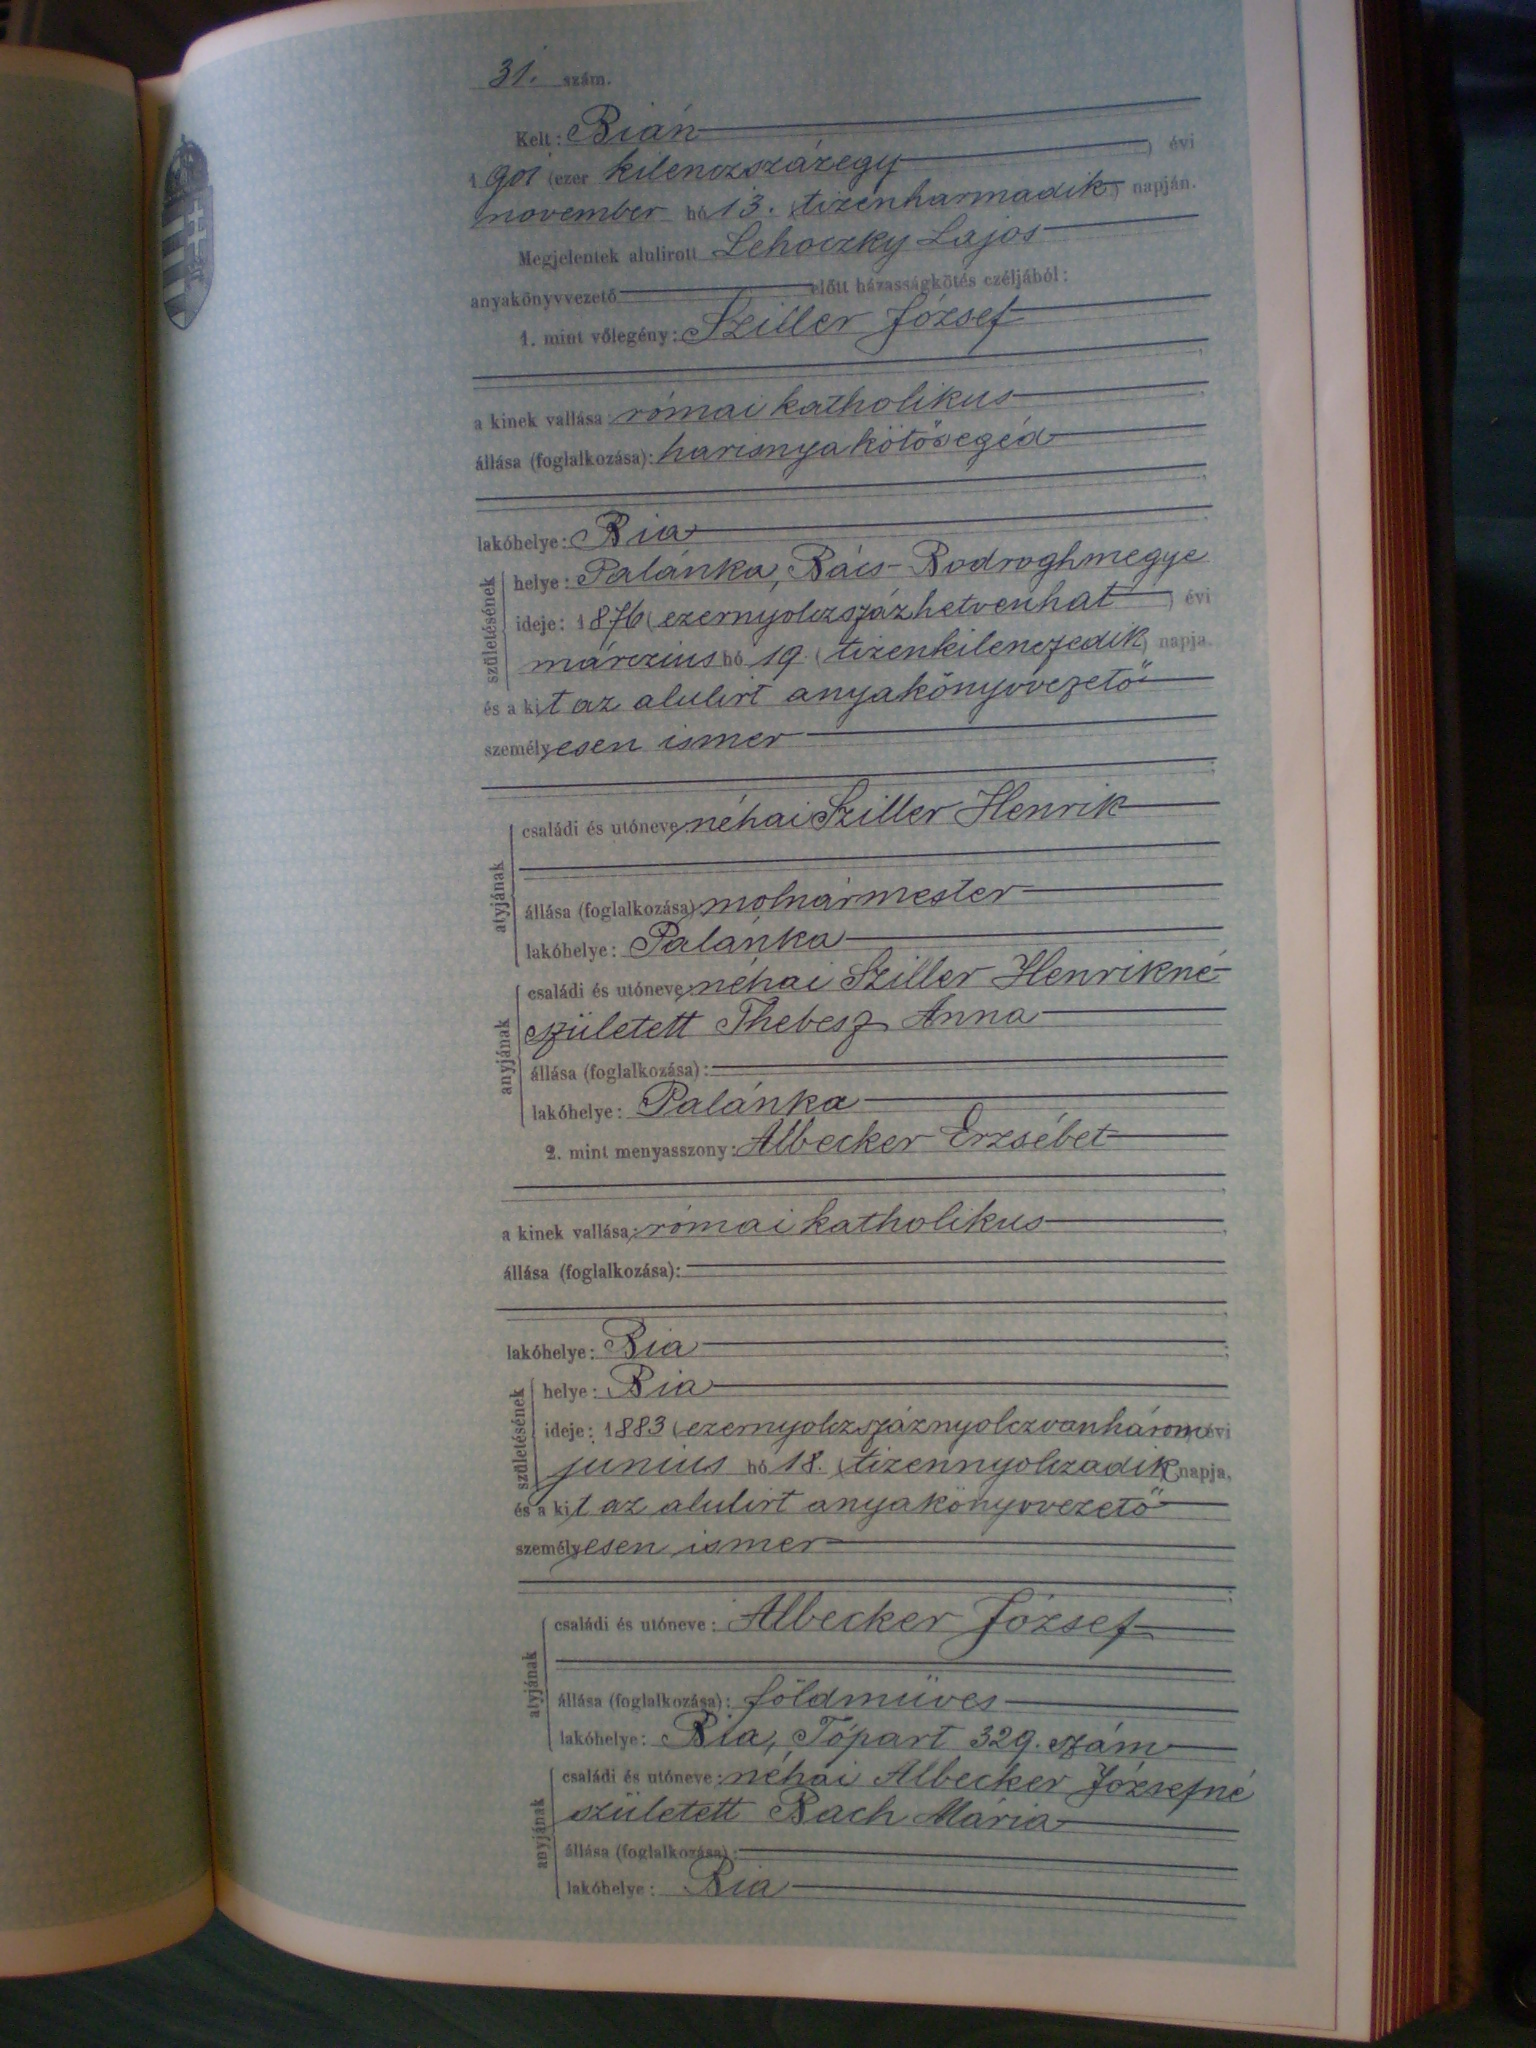 31. szám.
Kelt: Bián
1901 (ezer kilenczszázegy) évi
november hó 13. (tizenharmadik) napján.
Megjelentek alulirott Lehoczky Lajos
anyakönyvvezető előtt házasságkötés czéljából:
1. mint vőlegény: Sziller József
a kinek vallása: római katholikus
állása (foglalkozása): harisnyakötősegéd
lakóhelye: Bia
születésének
helye: Palánka, Bács-Bodroghmegye
ideje: 1876 (ezernyolczszázhetvenhat) évi
márczius hó 19. (tizenkilenczedik) napja.
és a kit az alulirt anyakönyvvezető
személyesen ismer
atyjának
családi és utóneve: néhai Sziller Henrik
állása (foglalkozása): molnármester
lakóhelye: Palánka
anyjának
családi és utóneve: néhai Sziller Henrikné
született Thebesz Anna
állása (foglalkozása):
lakóhelye: Palánka
2. mint menyasszony: Albecker Erzsébet
a kinek vallása: római katholikus
állása (foglalkozása):
lakóhelye: Bia
születésének
helye: Bia
ideje: 1883 (ezernyolczszáznyolczvanhárom) évi
junius hó 18. (tizennyolczadik) napja,
és a kit az alulirt anyakönyvvezető
személyesen ismer
atyjának
családi és utóneve: Albecker József
állása (foglalkozása): földmüves
lakóhelye: Bia, Tópart 329. szám
anyjának
családi és utóneve: néhai Albecker Józsefné
született Bach Mária
állása (foglalkozása):
lakóhelye: Bia